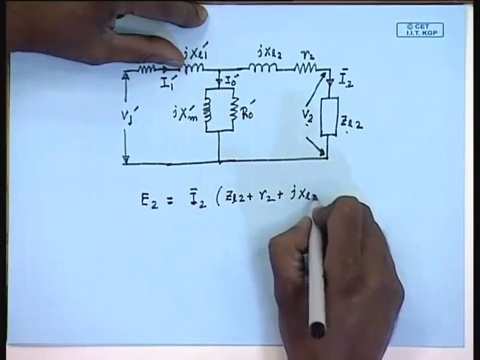 © CET
I.I.T. KGP
jxℓ1′ jxℓ2 r2
I̅1′ I0′ I̅2
V1′ jX′m R0′ V2 Zℓ2
E2 = I̅2 ( Zℓ2 + r2 + jxℓ2